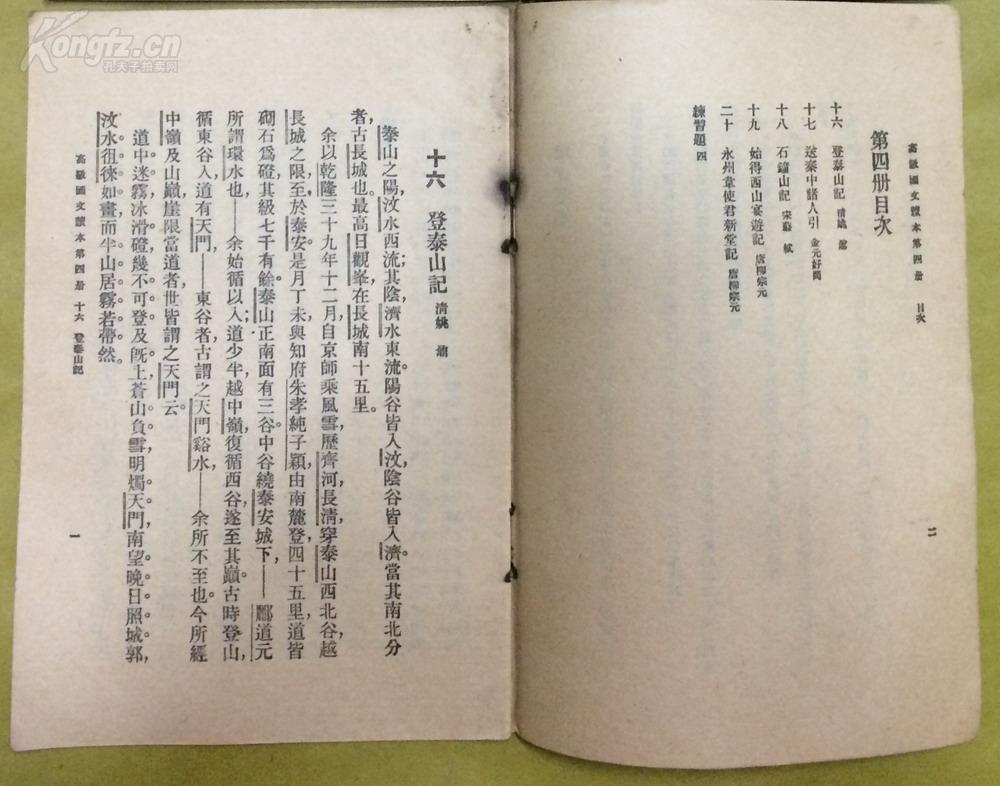 Kongfz.cn
孔夫子拍卖网
高級國文讀本第四册 目次
第四册目次
十六 登泰山記 清姚鼐
十七 送秦中諸人引 金元好問
十八 石鐘山記 宋蘇 軾
十九 始得西山宴遊記 唐柳宗元
二十 永州韋使君新堂記 唐柳宗元
練習題 四
二
十六 登泰山記 清姚 鼐
泰山之陽，汶水西流；其陰，濟水東流。陽谷皆入汶，陰谷皆入濟。當其南北分
者，古長城也。最高日觀峯，在長城南十五里。
余以乾隆三十九年十二月，自京師乘風雪，歷齊河長清，穿泰山西北谷，越
長城之限，至於泰安。是月丁未，與知府朱孝純子潁由南麓登。四十五里，道皆
砌石爲磴，其級七千有餘。泰山正南面有三谷。中谷繞泰安城下——酈道元
所謂環水也——余始循以入，道少半，越中嶺，復循西谷，遂至其巔。古時登山，
循東谷入，道有天門——東谷者，古謂之天門谿水——余所不至也。今所經
中嶺及山巔崖限當道者，世皆謂之天門云。
道中迷霧冰滑，磴幾不可登。及旣上，蒼山負雪，明燭天門，南望晚日照城郭，
汶水徂徠如畫，而半山居霧若帶然。
高級國文讀本第四册 十六 登泰山記
一